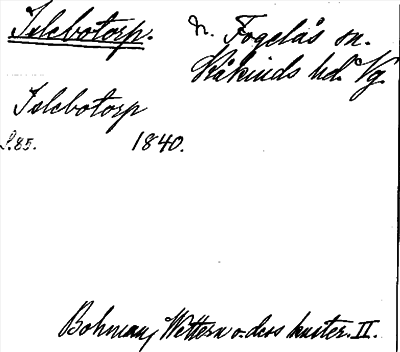 Islebotorp. N. Fogelås sn.
Kåkinds hd. Vg.
Islebotorp
S. 85. 1840.
Bohman, Wettern o. dess kuster. II.